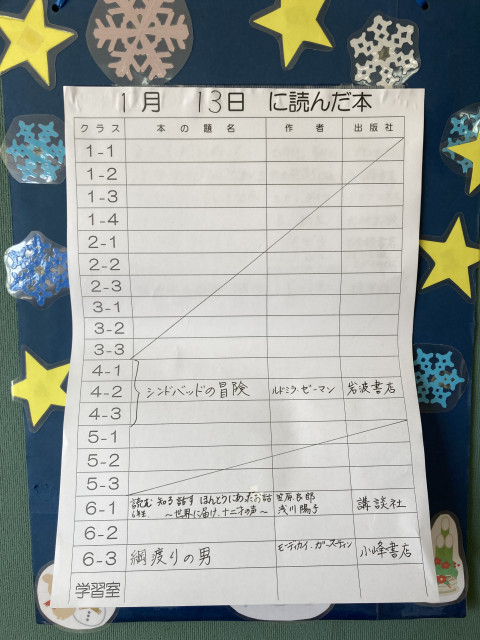 1月 13日 に読んだ本
クラス 本の題名 作者 出版社
1-1
1-2
1-3
1-4
2-1
2-2
2-3
3-1
3-2
3-3
4-1
4-2 シンドバッドの冒険 ルドミラ・ゼーマン 岩波書店
4-3
5-1
5-2
5-3
6-1 読む 知る 話す ほんとうにあったお話 笠原良郎 講談社
6年生 〜世界に届け、十二才の声〜 浅川陽子
6-2
6-3 綱渡りの男 モーディカイ・ガースティン 小峰書店
学習室